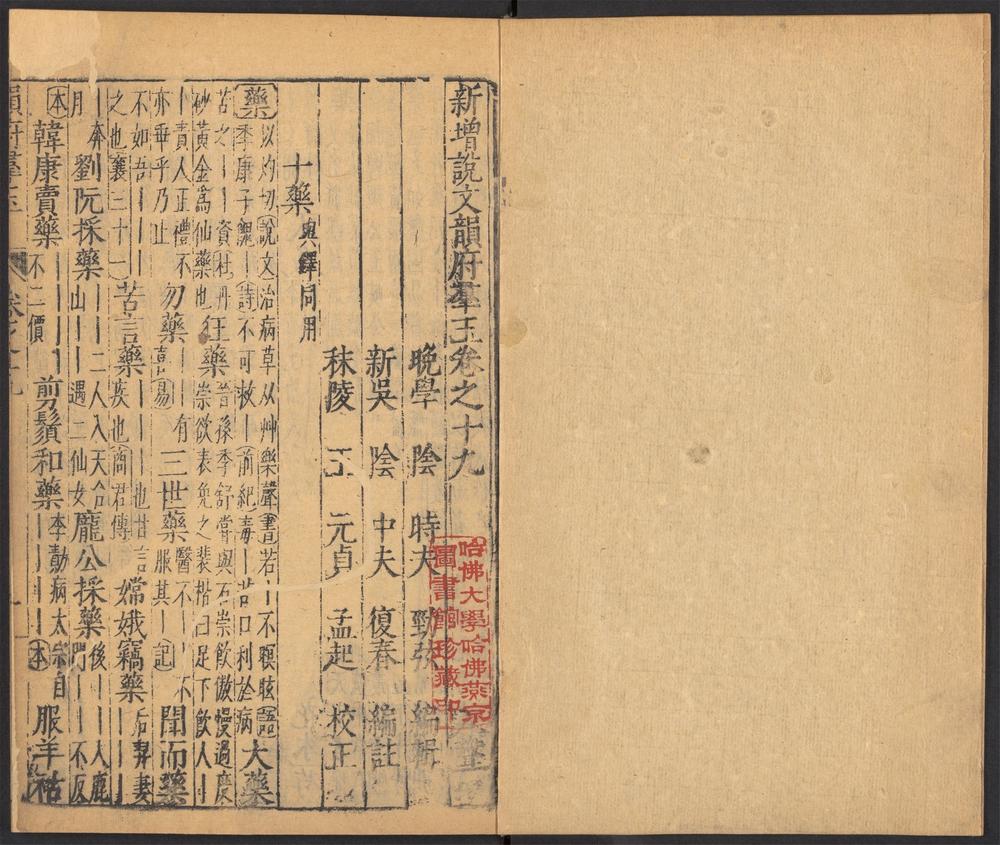 新增說文韻府羣玉卷之十九
晚學 陰 時夫 勁弦 編輯
新吳 陰 中夫 復春 編註
秣陵 王 元貞 孟起 校正
十藥 與鐸同用
藥 以灼切說文治病草从艸樂聲書若丨不瞑眩語季康子饋丨詩不可救丨前紀毒丨苦口利於病 大藥
苦之丨丨資杜丹砂黃金爲仙藥也 狂藥 晉孫季舒嘗與石崇飲傲慢過度崇欲表免之裴楷曰足下飲人丨
丨責人正禮不亦垂乎乃止 勿藥 丨丨有喜易 三世藥 醫不丨丨丨不服其丨記 聞而藥
不如吾丨丨丨之也襄三十一 苦言藥 丨丨丨也甘言疾也商君傳 嫦娥竊藥 后羿妻丨丨丨
丨奔月 劉阮採藥 丨丨二人入天台山丨丨遇二仙女 龐公採藥 後丨丨人鹿門丨丨不返
本 韓康賣藥 丨丨丨丨不二價 剪鬚和藥 李勣病太宗自丨丨丨丨本 服羊祜
哈佛大學哈佛燕京
圖書館珍藏印